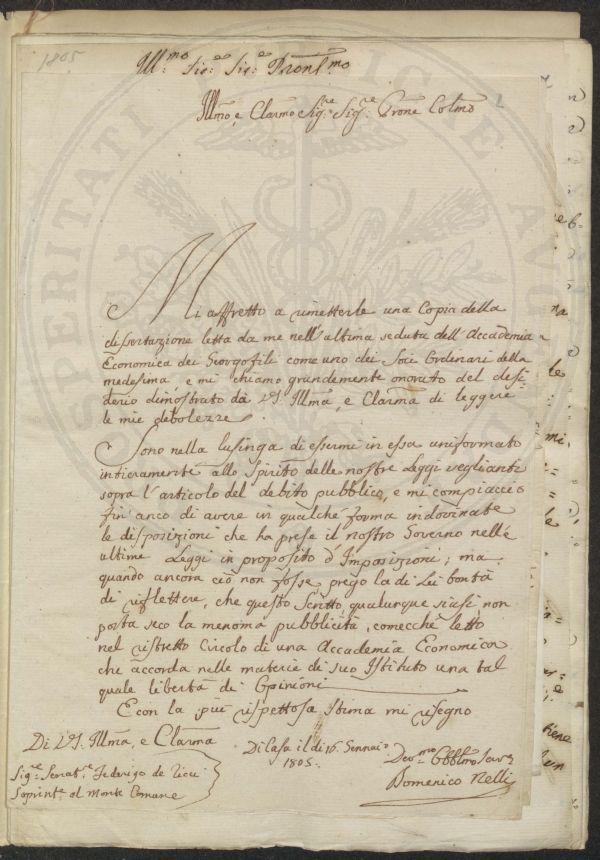 1805
Ill:mo Sig:e Sig:e Pron Col:mo
Illmo, e Clarmo Sig:re Sig:re Prone Colmo
Mi affretto a rimetterle una Copia della
dissertazione letta da me nell'ultima seduta dell'Accademia
Economica dei Georgofili come uno dei Soci Ordinari della
medesima, e mi chiamo grandemente onorato del desi=
derio dimostrato da VS. Illma, e Clarma di leggere
le mie debolezze.
Sono nella lusinga di essermi in essa uniformato
intieramente allo spirito delle nostre Leggi veglianti
sopra l'articolo del debito pubblico, e mi compiaccio
fin anco di avere in qualche forma indovinate
le disposizioni che ha prese il nostro Governo nelle
ultime Leggi in proposito d'Imposizioni; ma
quando ancora ciò non fosse prego la di Lei bontà
di riflettere, che questo Scritto qualunque siasi non
porta seco la menoma pubblicità, comecchè letto
nel ristretto Circolo di una Accademia Economica
che accorda nelle materie di suo Istituto una tal
quale libertà di Opinioni
E con la più rispettosa stima mi rassegno
Di VS. Illma, e Clarma
Di Casa il dì 16. Gennaio
1805.
Dev:mo Obblmo Serv:e
Domenico Nelli
Sig:re Senat:re Federigo de Ricci
Soprint:e al Monte Comune